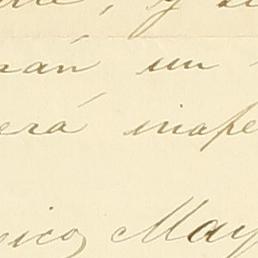 rán un
erá inape
xico, May